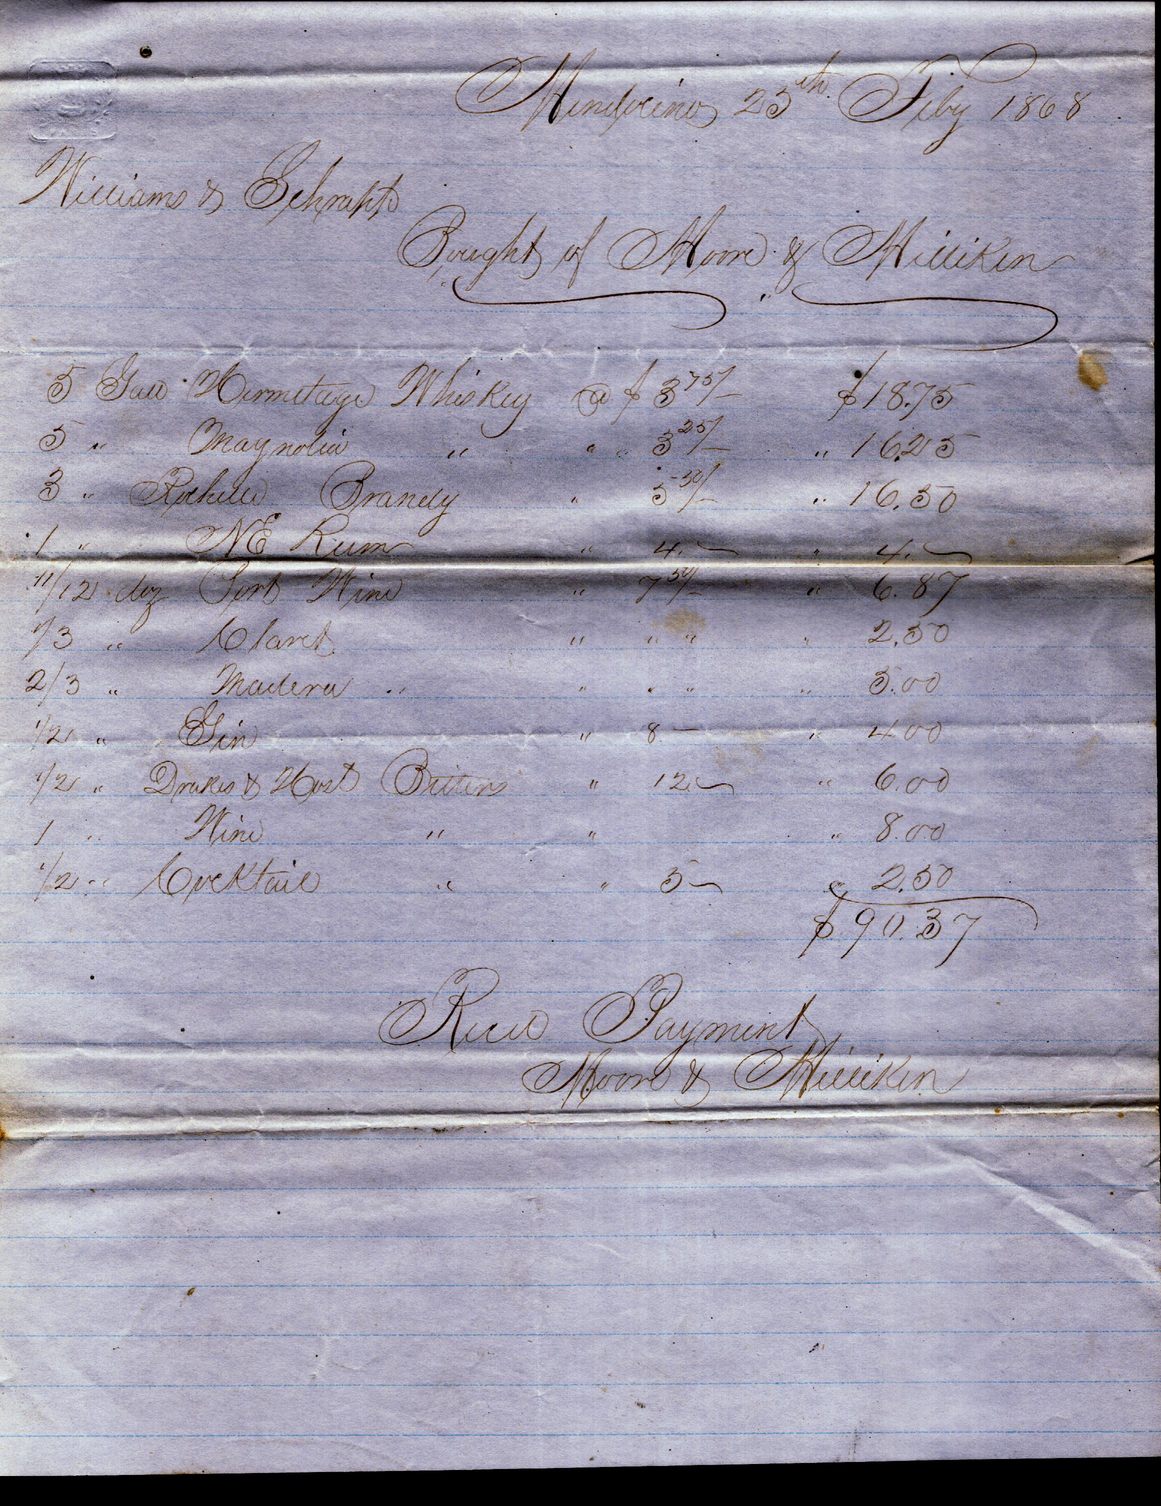 Mendocino 25th Feby 1868
Williams & Schrapp
Bought of Moore & Milliken
5 Gall Hermitage Whiskey @ $ 3 75/- $18.75
5 " Magnolia " " 3 25/- " 16.25
3 " Rochelle Brandy " 5 50/- " 16.50
1 " NE Rum " 4. — " 4. —
11/12 doz Port Wine " 7 50/- " 6.87
1/3 " Claret " " " " 2.50
2/3 " Madera " " " " " 5.00
1/2 " Gin " 8 — " 4.00
1/2 " Drakes & Host Bitters " 12 — " 6.00
1 " Wine " " " 8.00
1/2 " Cocktail " " 5 — " 2.50
$ 90.37
Recd Payment
Moore & Milliken